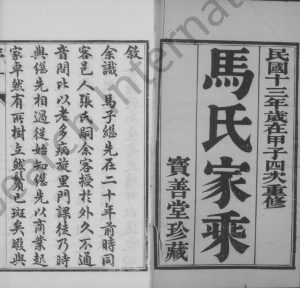 民國十三年歲在甲子四次重修
馬氏家乘
寶善堂珍藏
敘
余識馬子繼先在二十年前時同
客邑人張氏嗣余客授於外久不通
音問比以老多病旋里門課徒乃時
與繼先相過從始知繼先以商業起
家卓然有所樹立然鬚已斑矣暇與